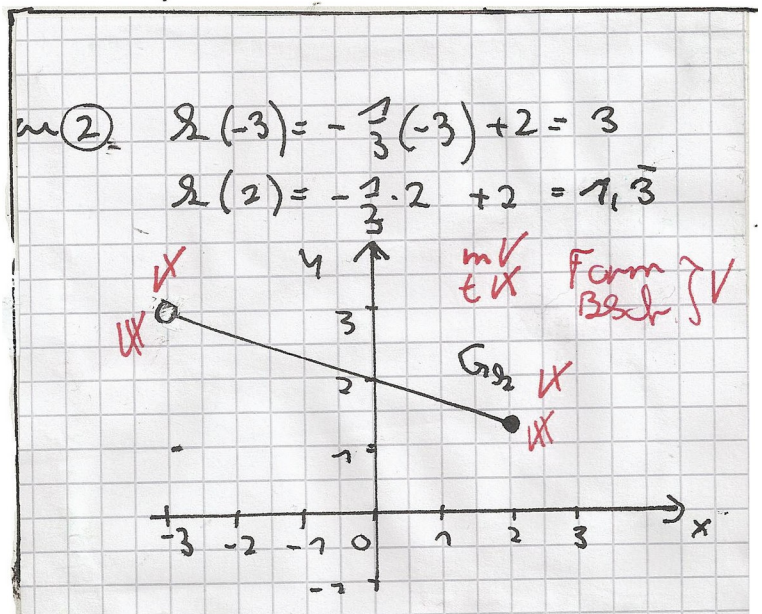 zu ② h(-3) = -1/3 (-3) + 2 = 3
h(2) = -1/3 · 2 + 2 = 1,3̄
y
m V Form
t V Besch } V
3
G_h
2
1
-3 -2 -1 0 1 2 3 x
-1